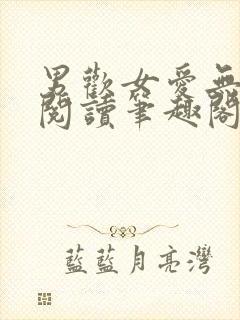 男歡女愛無
閱讀筆趣閣
藍藍月亮灣